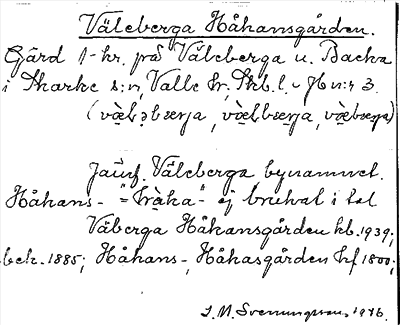 Väleberga Håkansgården.
Gård 1-hr. på Väleberga u. Backa
i Skarke s:n, Valle hr, Skb. l. - Jb n:r 3.
(væ̀lǝbærja, væ̀lbærja, væ̀bærja)
Jämf. Väleberga bynamnet.
Håkans- "-hràka-" ej brukat i tal
Väberga Håkansgården kb. 1939;
bek. 1885; Håkans-, Håkasgården hf 1800;
J. M. Svenungsson, 1946.